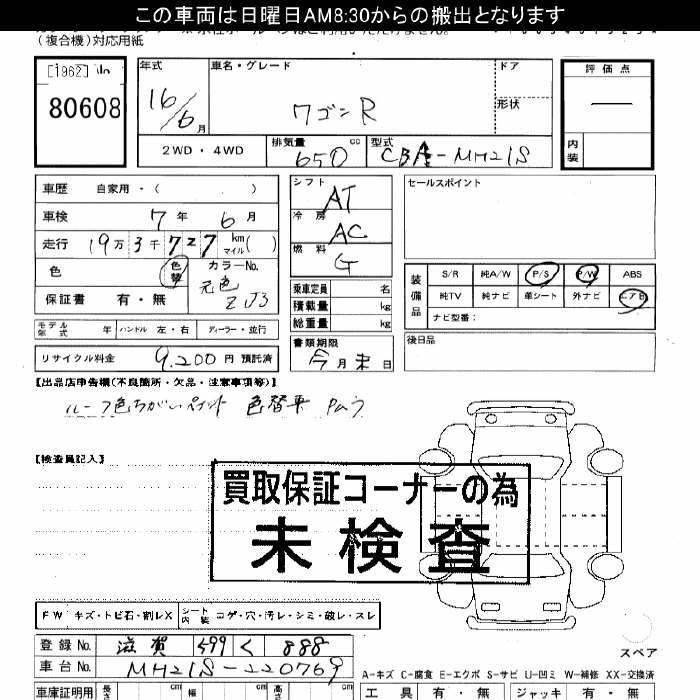 この車両は日曜日AM8:30からの搬出となります
(複合機)対応用紙
[1962]
80608
年式
16/6月
車名・グレード
ワゴンR
ドア
形状
評価点
内装
2WD・4WD
排気量 650 cc
型式 CBA-MH21S
車歴 自家用・( )
車検 7年 6月
走行 19万3千727 km マイル( )
色 色替 カラーNo.
元色 ZJ3
保証書 有・無
シフト AT
冷房 AC
燃料 G
セールスポイント
装備品
S/R 純A/W P/S P/W ABS
純TV 純ナビ 革シート 外ナビ エアB
ナビ型番:
乗車定員 名
積載量 kg
総重量 kg
モデル年式 年 ハンドル 左・右 ディーラー・並行
書類期限 今月末日
後日品
リサイクル料金 9,200円 預託済
【出品店申告欄(不良箇所・欠品・注意事項等)】
ルーフ色ちがいペイント 色替車 Pムラ
【検査員記入】
買取保証コーナーの為
未検査
FW キズ・トビ石・割レX シート内装 コゲ・穴・汚レ・シミ・破レ・スレ
登録No. 滋賀 599 く 888
車台No. MH21S-220769
スペア
A-キズ C-腐食 E-エクボ S-サビ U-凹ミ W-補修 XX-交換済
車庫証明用 長さ cm 幅 cm 高さ cm
工具 有・無 ジャッキ 有・無